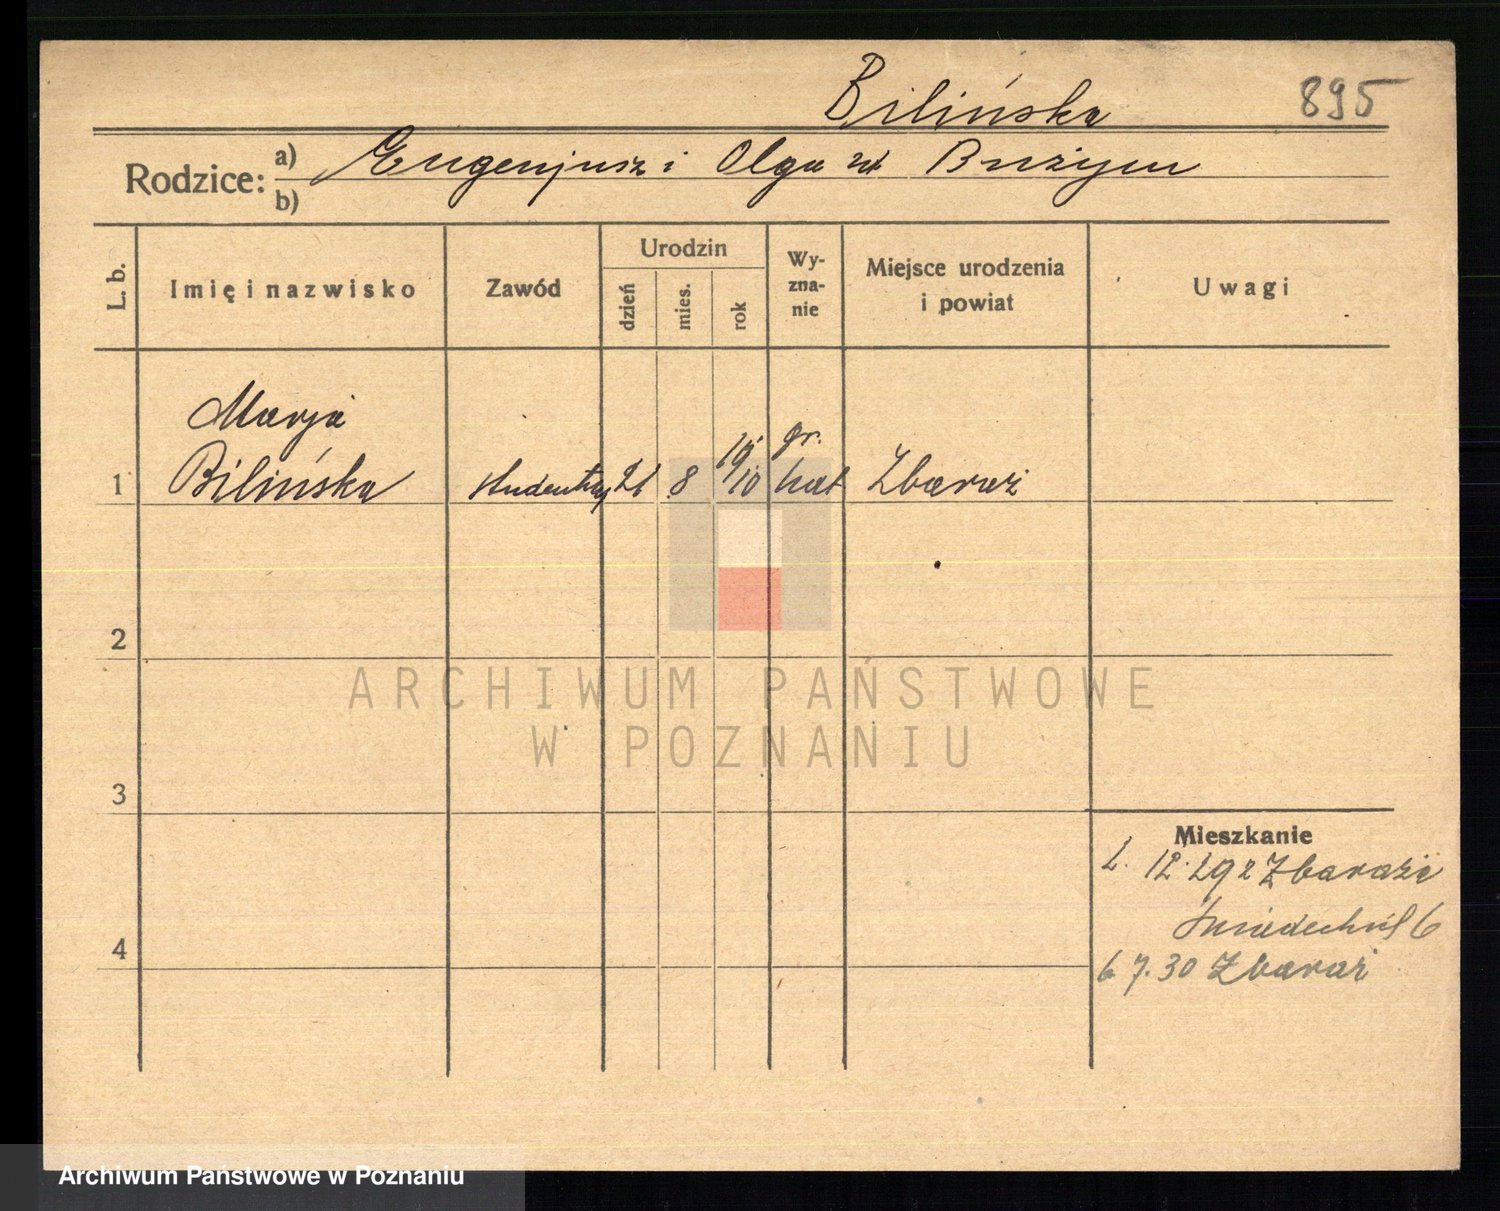 Bilińska
895
Rodzice: a) Eugenjusz i Olga
b)
L. b.
Imię i nazwisko
Zawód
Urodzin
dzień
mies.
rok
Wy-
zna-
nie
Miejsce urodzenia
i powiat
Uwagi
Marja
Bilińska
1
studentka
21
8
19/10
gr.
kat
Zbaraż
2
3
4
Mieszkanie
12.29 z Zbaraża
6
6 7.30 Zbaraż
ARCHIWUM PAŃSTWOWE
W POZNANIU
Archiwum Państwowe w Poznaniu